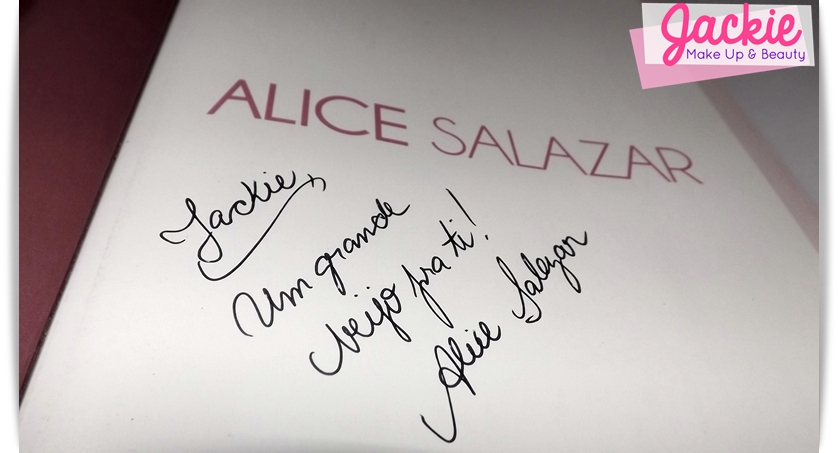 Jackie
Make Up & Beauty
ALICE SALAZAR
Jackie,
Um grande
beijo pra ti!
Alice Salazar